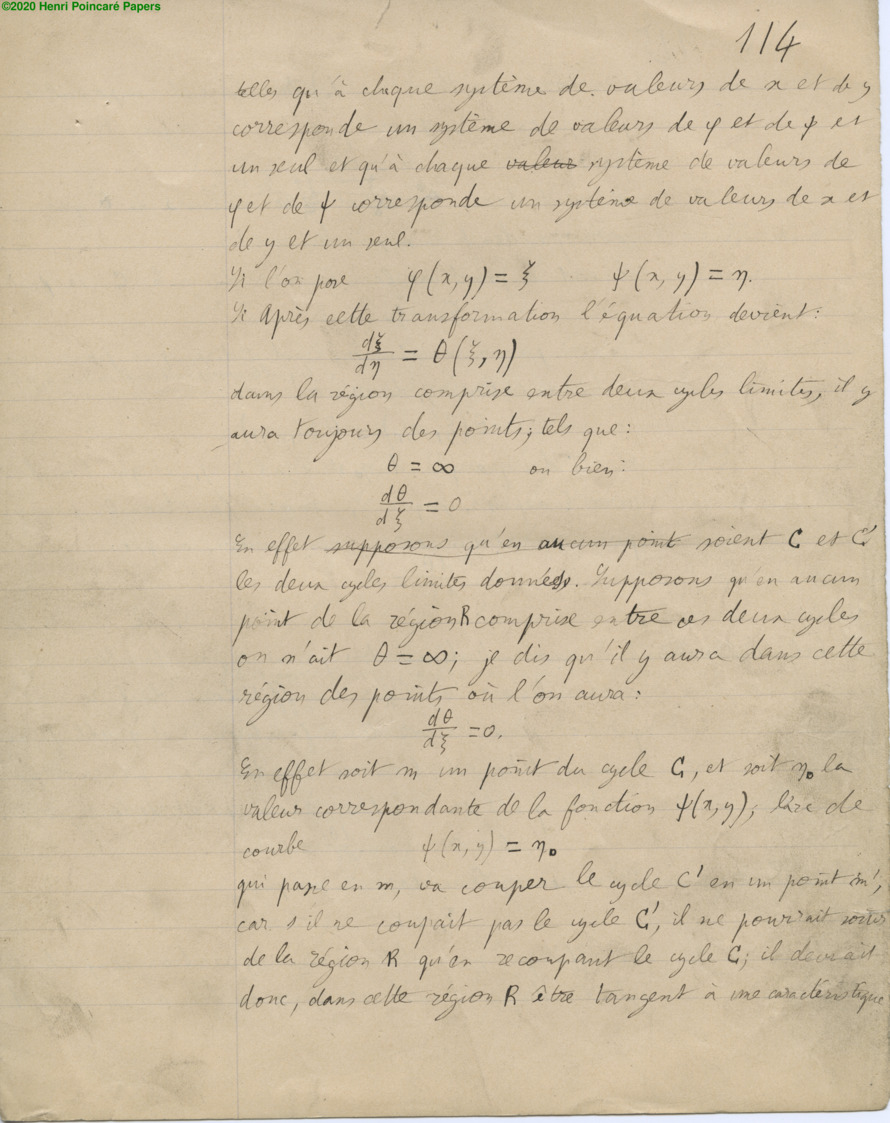 ©2020 Henri Poincaré Papers
114
telles qu'à chaque système de valeurs de x et de y
corresponde un système de valeurs de φ et de ψ et
un seul et qu'à chaque valeur système de valeurs de
φ et de ψ corresponde un système de valeurs de x et
de y et un seul.
Si l'on pose φ(x, y) = ξ ψ(x, y) = η.
Si Après cette transformation l'équation devient:
dξ/dη = θ(ξ, η)
dans la région comprise entre deux cycles limites, il y
aura toujours des points; tels que:
θ = ∞ ou bien:
dθ/dξ = 0
En effet supposons qu'en aucun point soient C et C'
les deux cycles limites donnés. Supposons qu'en aucun
point de la région R comprise entre ces deux cycles
on n'ait θ = ∞; je dis qu'il y aura dans cette
région des points où l'on aura:
dθ/dξ = 0.
En effet soit m un point du cycle C, et soit η₀ la
valeur correspondante de la fonction ψ(x, y); l'arc de
courbe ψ(x, y) = η₀
qui passe en m, va couper le cycle C' en un point m';
car s'il ne coupait pas le cycle C', il ne pourrait sortir
de la région R qu'en recoupant le cycle C; il devrait
donc, dans cette région R être tangent à une caractéristique